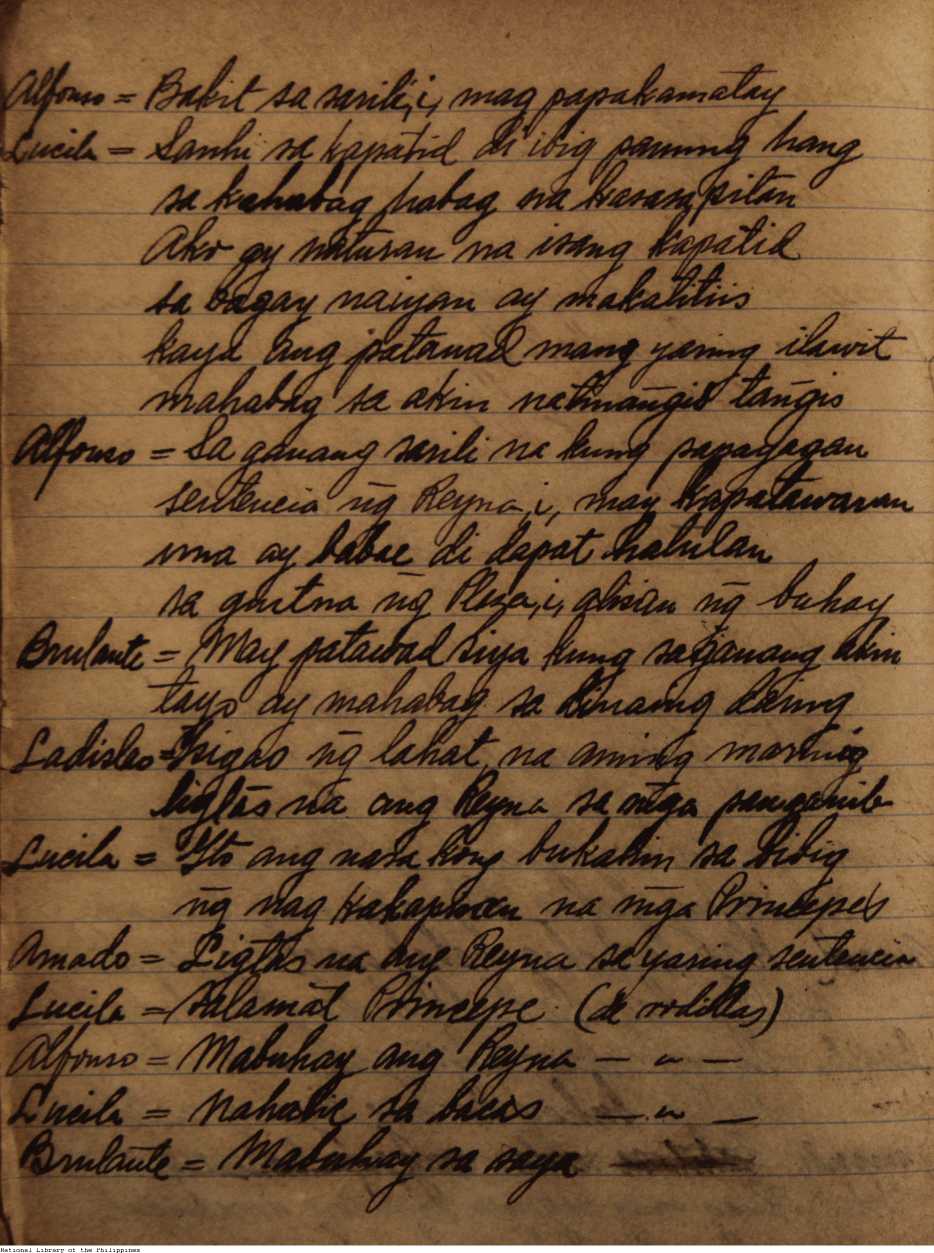 Alfonso = Bakit sa sarili,i, mag papakamatay
Lucila = Sanhi sa kapatid di ibig panung hang
sa kahabag habag na kasasapitan
Ako ay naturan na isang kapatid
sa bagay naiyan ay makatitiis
kaya ang patawad mang yaring ilawit
mahabag sa akin natinangis tangis
Alfonso = Sa ganang sarili na kung papayagan
sentencia ng Reyna,i, may kapatawaran
una ay babae di dapat hatulan
sa gitna ng Plasa,i, alisan ng buhay
Brulante = May patawad siya kung saganang akin
tayo ay mahabag sa kinaing daing
Ladislao = ng lahat na aming marinig
ligtas na ang Reyna sa mga panganib
Lucila = Yto ang nasa kong bukahin sa bibig
ng nag kakapisan na mga Principes
Amado = Ligtas na ang Reyna sa yaring sentencia
Lucila = Salamat Principe. (de rodillas)
Alfonso = Mabuhay ang Reyna — " —
Lucila = nahalic sa bacas — " —
Brulante = Mabuhay sa saya
National Library of the Philippines